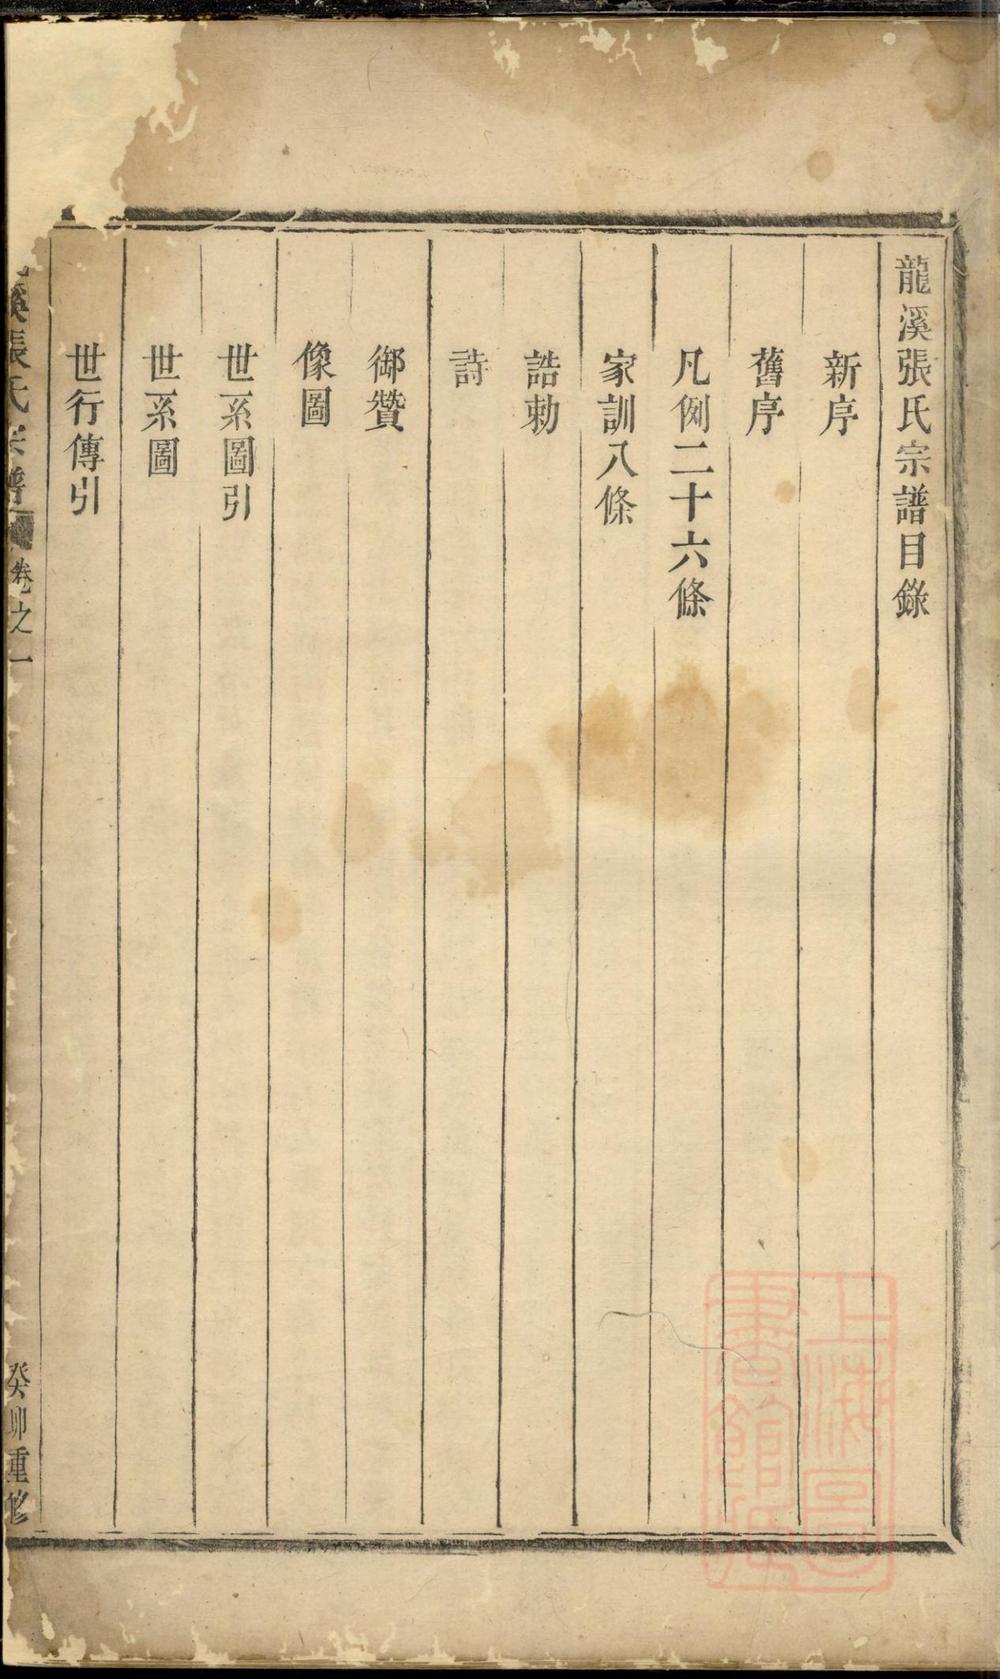 龍溪張氏宗譜目錄
新序
舊序
凡例二十六條
家訓八條
誥勅
詩
御贊
像圖
世系圖引
世系圖
世行傳引
溪張氏宗譜 卷之一 癸卯重修
上海圖書館藏